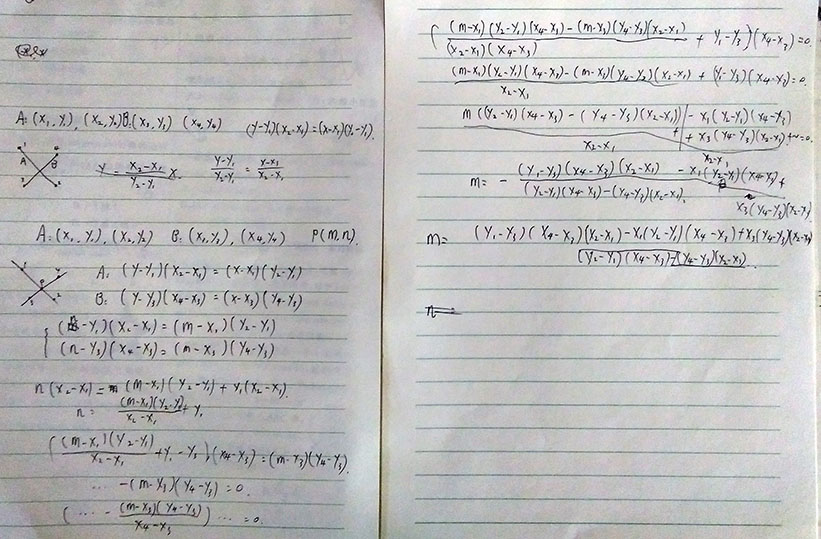 A: (x₁, y₁), (x₂, y₂) B: (x₃, y₃) (x₄, y₄) (y-y₁)(x₂-x₁)=(x-x₁)(y₂-y₁).
1 4
A B
3 2
y = (x₂-x₁)/(y₂-y₁) x. (y-y₁)/(y₂-y₁) = (x-x₁)/(x₂-x₁)
A: (x₁, y₁), (x₂, y₂) B: (x₃, y₃), (x₄, y₄) P(m, n).
A: (y-y₁)(x₂-x₁) = (x-x₁)(y₂-y₁)
B: (y-y₃)(x₄-x₃) = (x-x₃)(y₄-y₃)
{ (n-y₁)(x₂-x₁) = (m-x₁)(y₂-y₁)
(n-y₃)(x₄-x₃) = (m-x₃)(y₄-y₃)
n(x₂-x₁) = (m-x₁)(y₂-y₁) + y₁(x₂-x₁).
n = (m-x₁)(y₂-y₁)/(x₂-x₁) + y₁
((m-x₁)(y₂-y₁)/(x₂-x₁) + y₁-y₃)(x₄-x₃) = (m-x₃)(y₄-y₃).
... -(m-x₃)(y₄-y₃) = 0.
(... - (m-x₃)(y₄-y₃)/(x₄-x₃)) ... = 0.
((m-x₁)(y₂-y₁)(x₄-x₃) - (m-x₃)(y₄-y₃)(x₂-x₁)/(x₂-x₁)(x₄-x₃) + y₁-y₃)(x₄-x₃) = 0.
(m-x₁)(y₂-y₁)(x₄-x₃) - (m-x₃)(y₄-y₃)(x₂-x₁)/x₂-x₁ + (y₁-y₃)(x₄-x₃) = 0.
m((y₂-y₁)(x₄-x₃) - (y₄-y₃)(x₂-x₁)) - x₁(y₂-y₁)(x₄-x₃)
+ x₃(y₄-y₃)(x₂-x₁) +~ = 0.
x₂-x₁ x₂-x₁
m = - (y₁-y₃)(x₄-x₃)(x₂-x₁) - x₁(y₂-y₁)(x₄-x₃) +
(y₂-y₁)(x₄-x₃)-(y₄-y₃)(x₂-x₁). x₃(y₄-y₃)(x₂-x₁)
m = (y₁-y₃)(x₄-x₃)(x₂-x₁) - x₁(y₂-y₁)(x₄-x₃) + x₃(y₄-y₃)(x₂-x₁)
(y₂-y₁)(x₄-x₃)-(y₄-y₃)(x₂-x₁).
n =